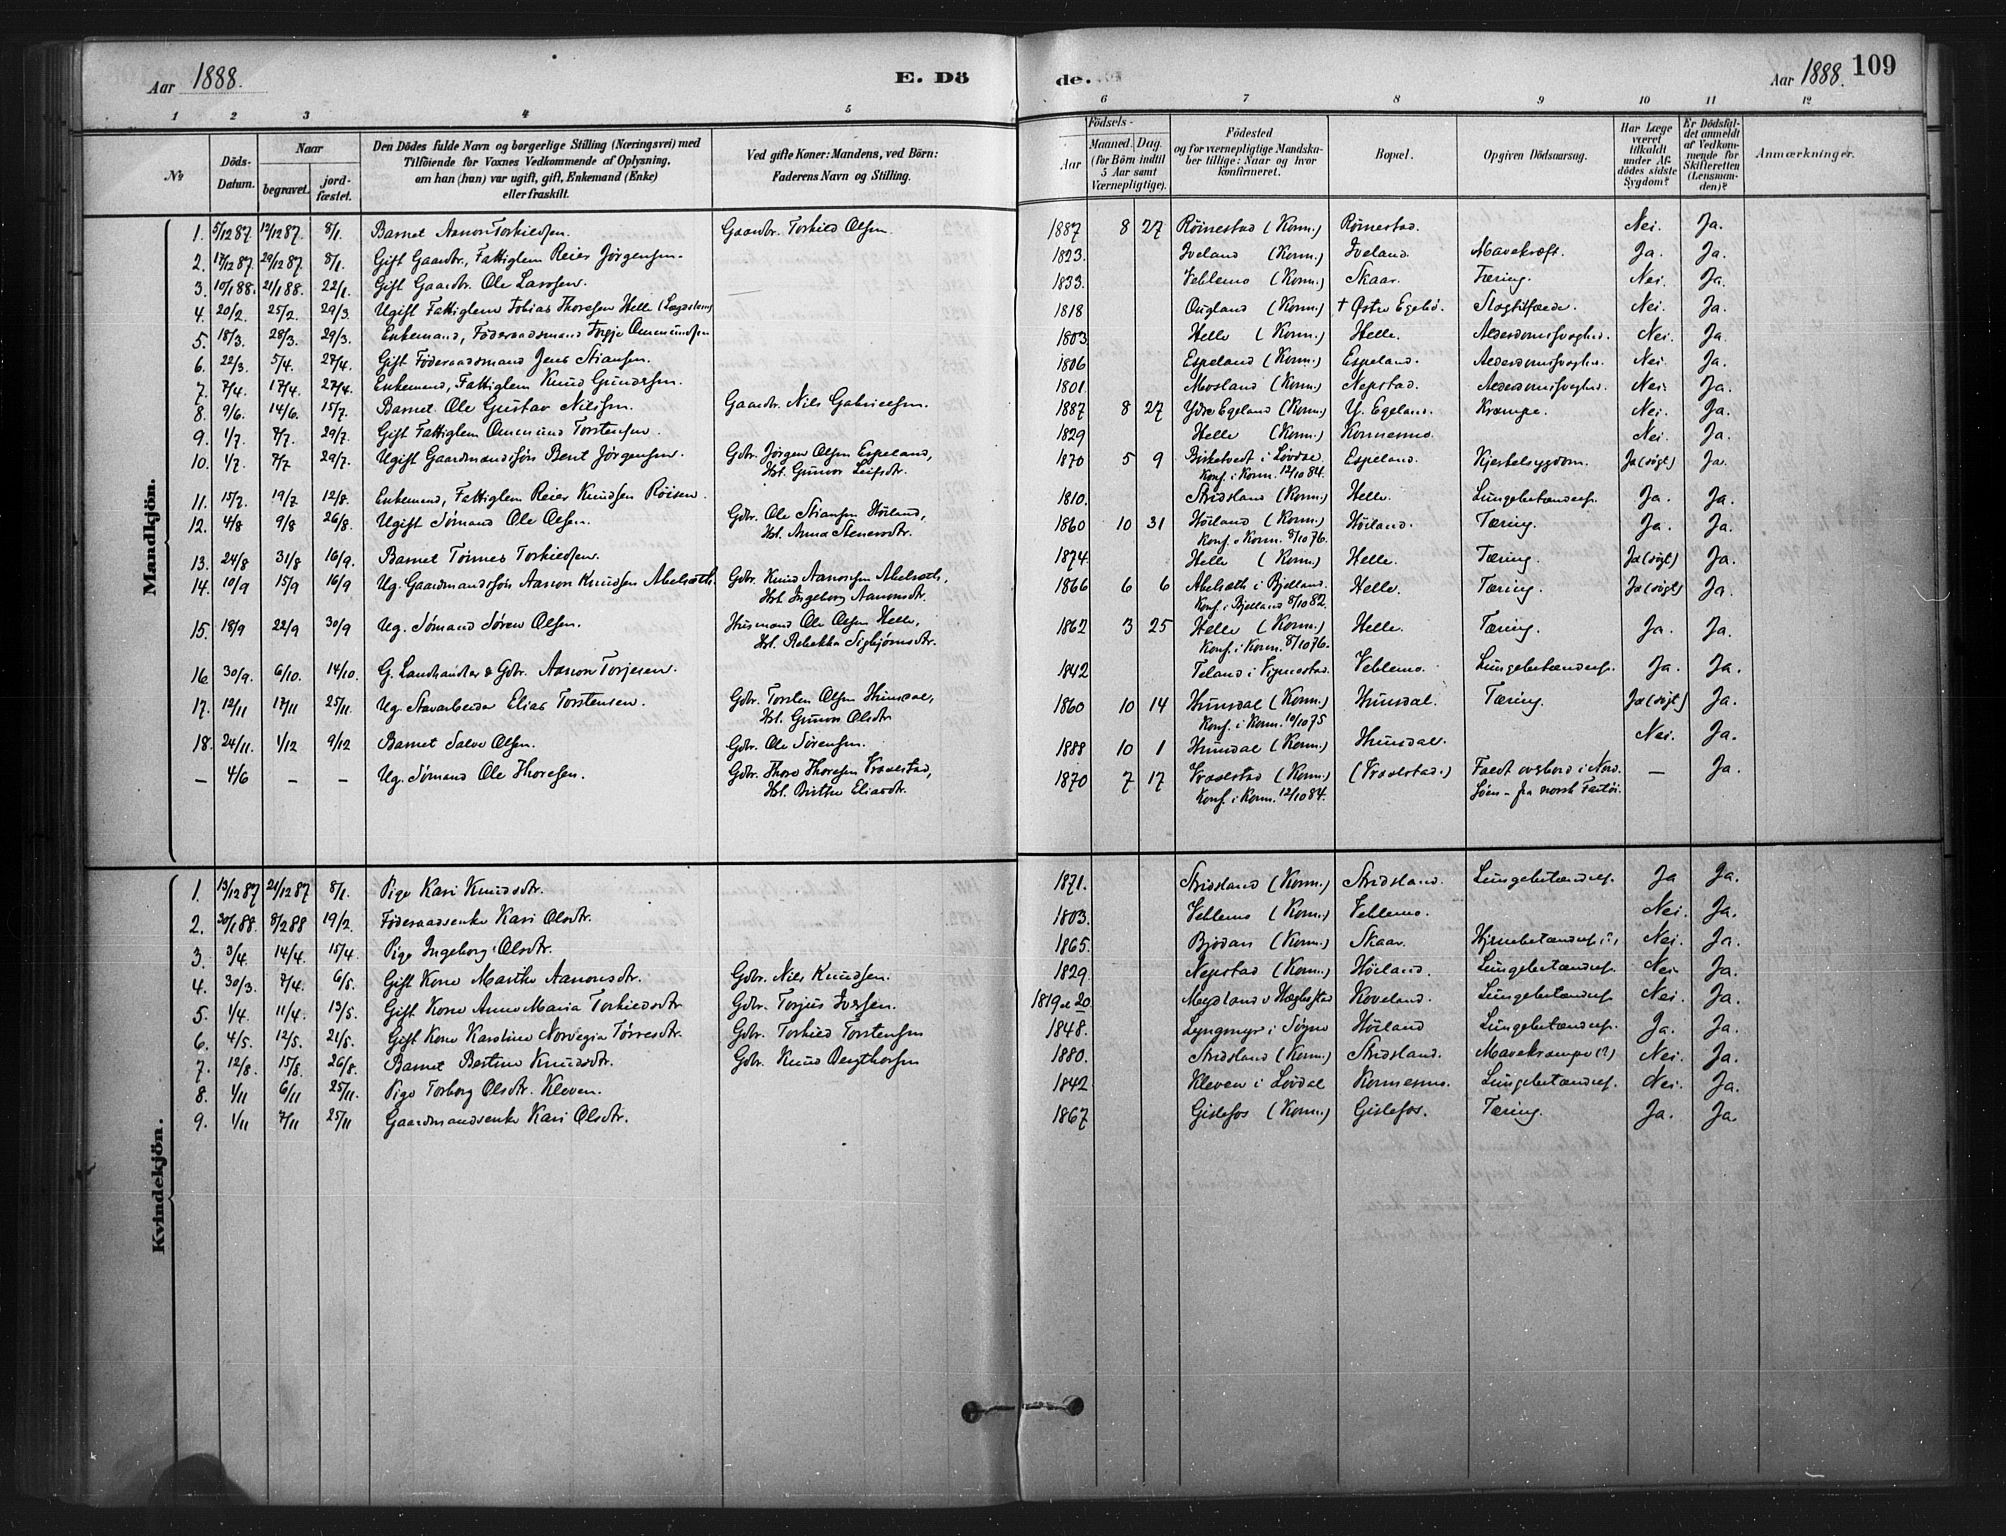 Aar 1888. E. Dö de. Aar 1888. 109
1 2 3 4 5 6 7 8 9 10 11 12
No
Döds-Datum.
Naar
begravet.
jord-fæstet.
Den Dödes fulde Navn og borgerlige Stilling (Næringsvei) med
Tilföiende for Voxnes Vedkommende af Oplysning,
om han (hun) var ugift, gift, Enkemand (Enke)
eller fraskilt.
Ved gifte Koner: Mandens, ved Börn:
Faderens Navn og Stilling.
Födsels-
Aar
Maaned. Dag.
(for Börn indtil
5 Aar samt
Værnepligtige).
Födested
og for værnepligtige Mandska-
ber tillige: Naar og hvor
konfirmeret.
Bopæl.
Opgiven Dödsaarsag.
Har Læge
været
tilkaldt
under Af-
dödes sidste
Sygdom?
Er Dödsfal-
det anmeldt
af Vedkom-
mende for
Skifteretten
(Lensman-
den)?
Anmærkninger.
Mandkjön.
1. 5/12 87 12/12 87. 8/1. Barnet Aanon Torkildsen. Gaardbr. Torkild Olsen. 1887 8 27 Röinestad (Konm.) Röinestad. Nei. Ja.
2. 17/12 87. 29/12 87. 8/1. Gift Gaardbr., Fattiglem Reier Jörgensen. 1823. Iveland (Konm.) Iveland. Mavekræft. Ja. Ja.
3. 10/1 88. 21/1 88. 22/1. Gift Gaardbr. Ole Larssen. 1833. Veblemo (Konm.) Skaar. Tæring. Nei. Ja.
4. 20/2. 25/2. 29/3 Ugift Fattiglem Tobias Thoresen Helle 1818 Ougland (Konm.) † Östre Egebö. Slagtilfælde. Nei. Ja.
5. 18/3. 28/3. 29/3. Enkemand, Föderaadsmand Torje Ommundsen 1803 Helle (Konm.) Helle. Alderdomssvaghed. Nei. Ja.
6. 22/3. 5/4. 27/4. Gift Föderaadsmand Jens Stiansen. 1806 Espeland (Konm.) Espeland. Alderdomssvaghed. Nei. Ja.
7. 7/4. 17/4. 27/4. Enkemand, Fattiglem Knud Gundersen. 1801. Mosland (Konm.) Nepstad. Alderdomssvaghed. Nei. Ja.
8. 9/6. 14/6. 15/7. Barnet Ole Gustav Nilssen. Gaardbr. Nils Gabrielsen. 1887 8 27 Ydre Egeland (Konm.) Y. Egeland. Krampe. Nei. Ja.
9. 1/7. 7/7. 29/7. Gift Fattiglem Ommund Torstensen. 1829 Helle (Konm.) Konnesmo. Nei. Ja.
10. 1/7. 7/7 29/7. Ugift Gaardmandssön Bent Jörgensen. Gdbr. Jörgen Olsen Espeland, 1870 5 9 Birketvedt i Løvdal Espeland. Kjertelsygdom. Ja (søgt) Ja.
Hst. Gunvor Leifsdtr. Konf. i Konm. 12/10 84.
11. 15/7. 19/7 12/8. Enkemand, Fattiglem Reier Knudsen Röisen. 1810. Stridsland (Konm.) Helle. Lungebetændelse. Ja. Ja.
12. 4/8 9/8 26/8. Ugift Sømand Ole Olsen. Gdbr. Ole Stiansen Höiland, 1860 10 31 Höiland (Konm.) Höiland. Tæring. Ja. Ja.
Hst. Anna Stenersdtr. Konf. i Konm. 8/10 76.
13. 24/8 31/8 16/9. Barnet Tönnes Torkildsen. 1874. Helle (Konm.) Helle. Tæring. Ja (søgt) Ja.
14. 10/9 15/9 16/9 Ug. Gaardmandssön Aanon Knudsen Abelsæth. Gdbr. Knud Aanonsen Abelsæth, 1866 6 6 Abelsæth i Bjelland Helle. Tæring. Ja (søgt) Ja.
Hst. Ingeborg Aanonsdtr. Konf. i Bjelland 8/10 82.
15. 18/9 22/9 30/9 Ug. Sømand Sören Olsen. Husmand Ole Olsen Helle, 1862 3 25 Helle (Konm.) Helle. Tæring. Ja. Ja.
Hst. Rebekka Sigbjörnsdtr. Konf. i Konm. 8/10 76.
16. 30/9. 6/10. 14/10. G. Landhandler & Gdbr. Aanon Torjesen. 1842 Teland i Vigmostad. Veblemo. Lungebetændelse. Ja. Ja.
17. 12/11 17/11 25/11. Ug. Stavarbeider Elias Torstensen. Gdbr. Torsten Olsen Hunsdal, 1860 10 14 Hunsdal (Konm.) Hunsdal. Tæring. Ja (søgt) Ja.
Hst. Gunvor Olsdtr Konf. i Konm. 10/10 75
18. 24/11. 1/12 9/12 Barnet Salve Olsen. Gdbr. Ole Sørensen. 1888 10 1 Hunsdal (Konm.) Hunsdal. Nei. Ja.
— 4/6 — — Ug. Sømand Ole Thoresen. Gdbr. Thore Thoresen Vraalstad, 1870 7 17 Vraalstad (Konm.) (Vraalstad.) Faldt overbord i Nord- — Ja.
Hst. Birthe Eliasdtr. Konf. i Konm. 12/10 84. Söen - fra norsk Fartöi.
Kvindekjön.
1. 13/12 87 21/12 87 8/1. Pige Kari Knudsdtr. 1871. Stridsland (Konm.) Stridsland. Lungebetændelse. Ja Ja.
2. 30/1 88. 8/2 88 19/2. Föderaadsenke Kari Olsdtr. 1803. Veblemo (Konm.) Veblemo. Nei. Ja.
3. 3/4. 14/4. 15/4. Pige Ingeborg Olsdtr. 1865. Bjodan (Konm.) Skaar. Hjernebetændelse (?) Nei. Ja.
4. 30/3. 7/4. 6/5. Gift Kone Marthe Aanonsdtr. Gdbr. Nils Knudsen. 1829. Nepstad (Konm.) Höiland. Lungebetændelse. Nei. Ja.
5. 1/4. 11/4. 13/5. Gift Kone Anne Maria Torkildsdtr. Gdbr. Torjus Iversen. 1819 el. 20 Mydland i Hægbostad Koveland. Lungebetændelse Nei. Ja.
6. 4/5. 12/5. 21/5. Gift Kone Karoline Norvegia Tørresdtr. Gdbr. Torkild Torstensen 1848. Lyngmyr i Søgne Höiland Lungebetændelse. Ja. Ja.
7. 12/8. 15/8. 26/8. Barnet Bertine Knudsdtr. Gdbr. Knud Bergthorsen 1880. Stridsland (Konm.) Stridsland. Mavekrampe (?) Nei. Ja.
8. 1/11 6/11 25/11. Pige Torborg Olsdtr. Kleven. 1842 Kleven i Løvdal Konnesmo. Lungebetændelse. Nei. Ja.
9. 1/11 7/11 25/11 Gaardmandsenke Kari Olsdtr. 1867 Gislefos (Konm.) Gislefos. Tæring. Ja. Ja.